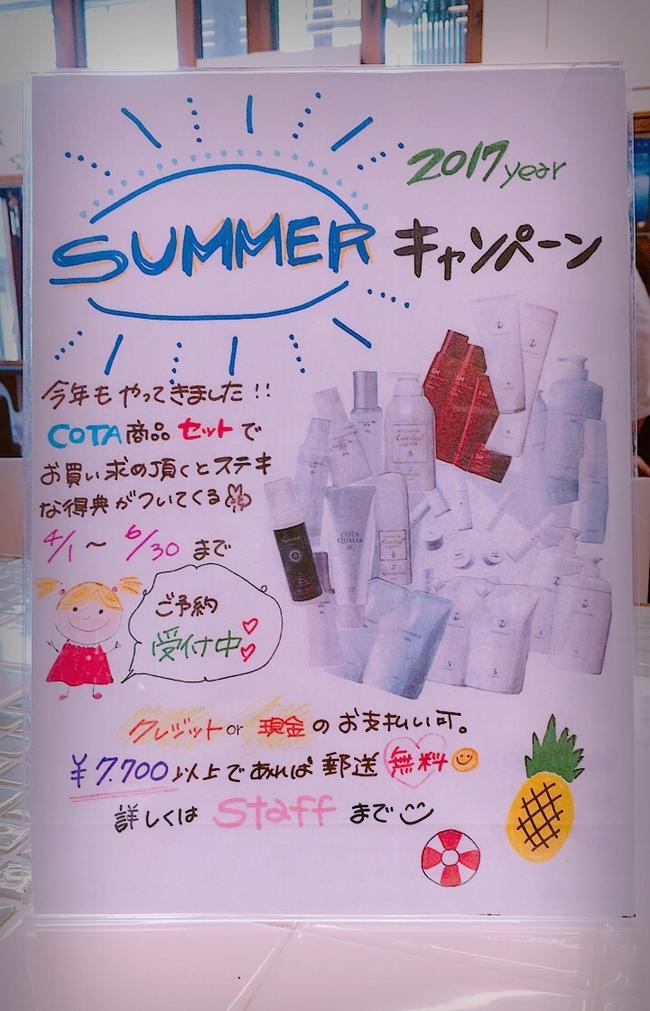 2017 year
SUMMER キャンペーン
今年もやってきました!!
COTA商品セットで
お買い求め頂くとステキ
な得典がついてくる
4/1〜6/30まで
ご予約
受付中
クレジットor現金のお支払い可。
¥7.700以上であれば郵送無料
詳しくはStaffまで
COTA
QUALIA